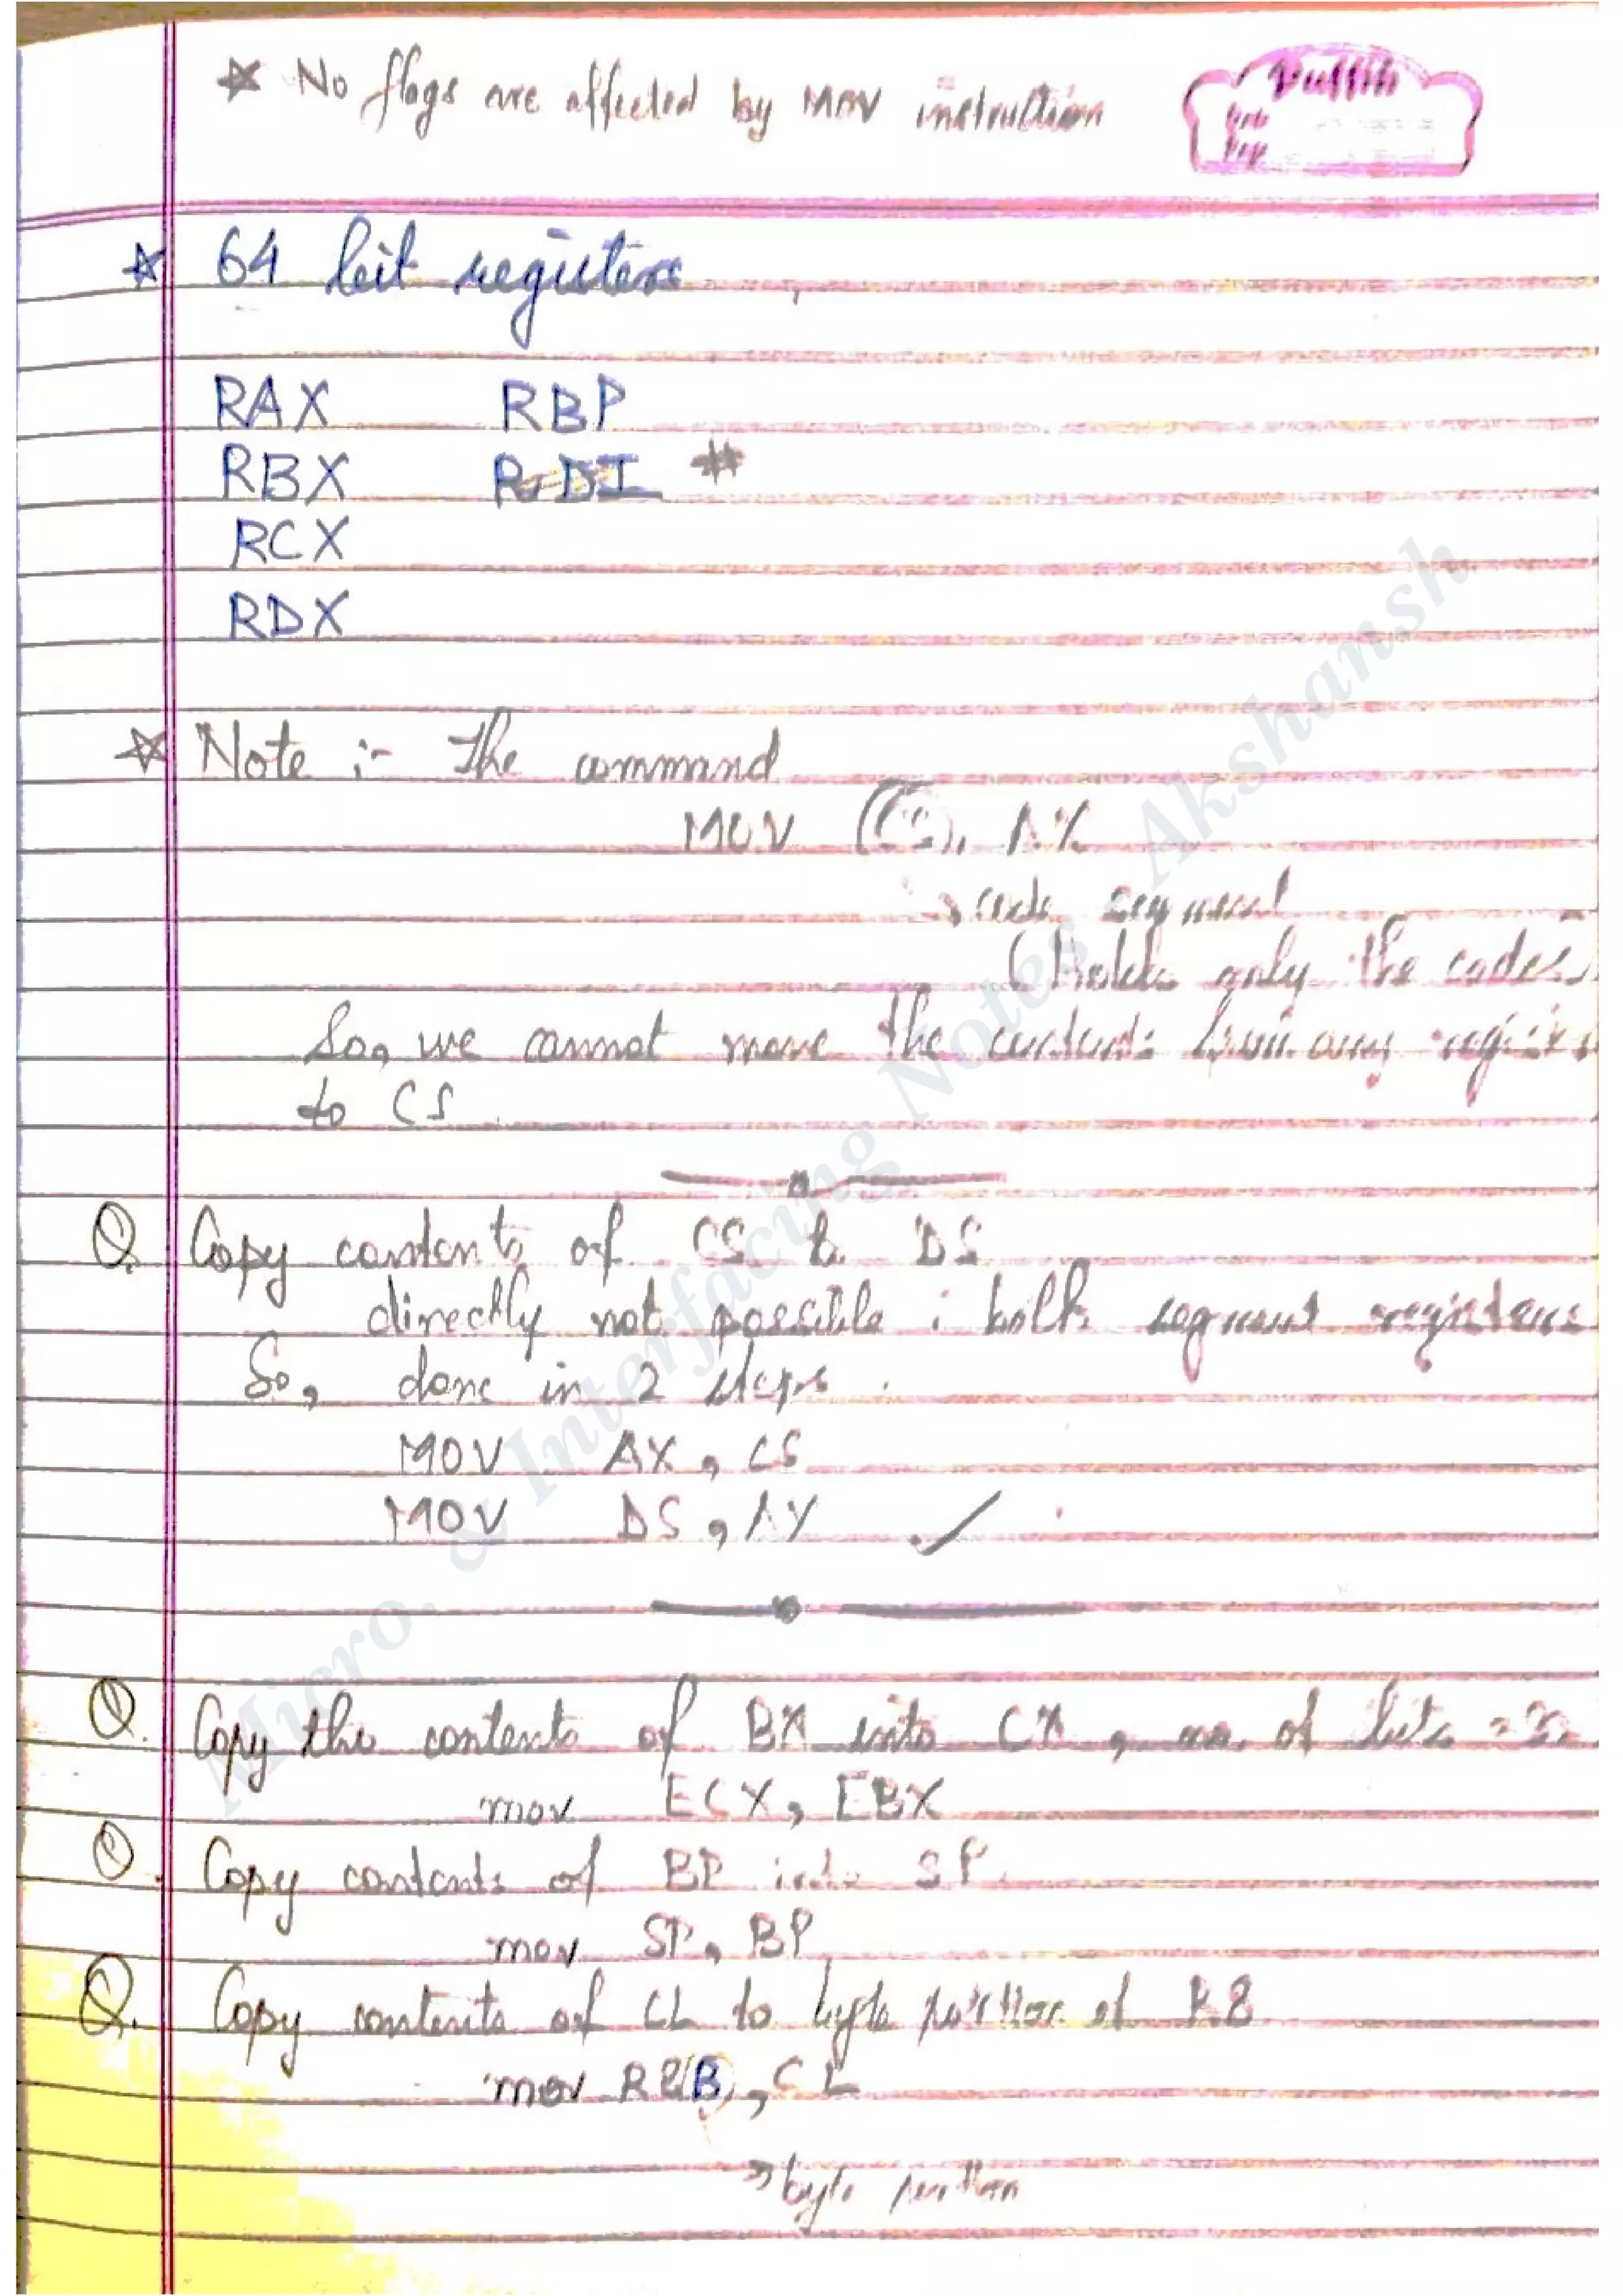 ☆ No flags are affected by MOV instruction
☆ 64 bit registers
RAX RBP
RBX RDI #
RCX
RDX
☆ Note :- The command
MOV (CS), AX
→ code segment
(Holds only the codes)
So, we cannot move the contents from any register
to CS
Q. Copy contents of CS & DS
directly not possible ∵ both segment registers
So, done in 2 steps.
MOV AX, CS
MOV DS, AX ✓
Q. Copy the contents of BX into CX, no. of bits = 32
mov ECX, EBX
Q. Copy contents of BP into SP.
mov SP, BP
Q. Copy contents of CL to byte portion of R8
mov R8(B), CL
→ byte portion
Micro. & Interfacing Notes Akshansh